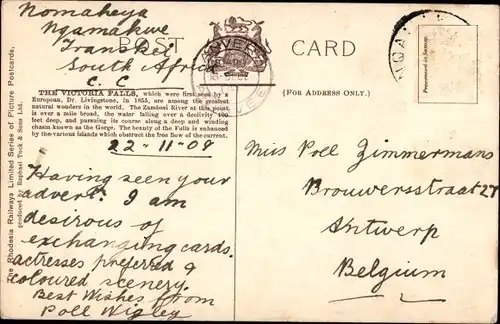 Nomaheya
Ngamakwe
Transkei
South Africa
C.C
POST CARD
(FOR ADDRESS ONLY.)
THE VICTORIA FALLS, which were first seen by a
European, Dr. Livingstone, in 1855, are among the greatest
natural wonders in the world. The Zambesi River at this point
is over a mile broad, the water falling over a declivity 400
feet deep, and pursuing its course along a deep and winding
chasm known as the Gorge. The beauty of the Falls is enhanced
by the various islands which obstruct the free flow of the current.
22-11-08
Having seen your
advert. I am
desirous of
exchanging cards.
actresses preferred &
coloured scenery.
Best Wishes from
Poll Wigley
The Rhodesia Railways Limited Series of Picture Postcards,
produced by Raphael Tuck & Sons Ltd.
Miss Poll Zimmermans
Brouwersstraat 27
Antwerp
Belgium